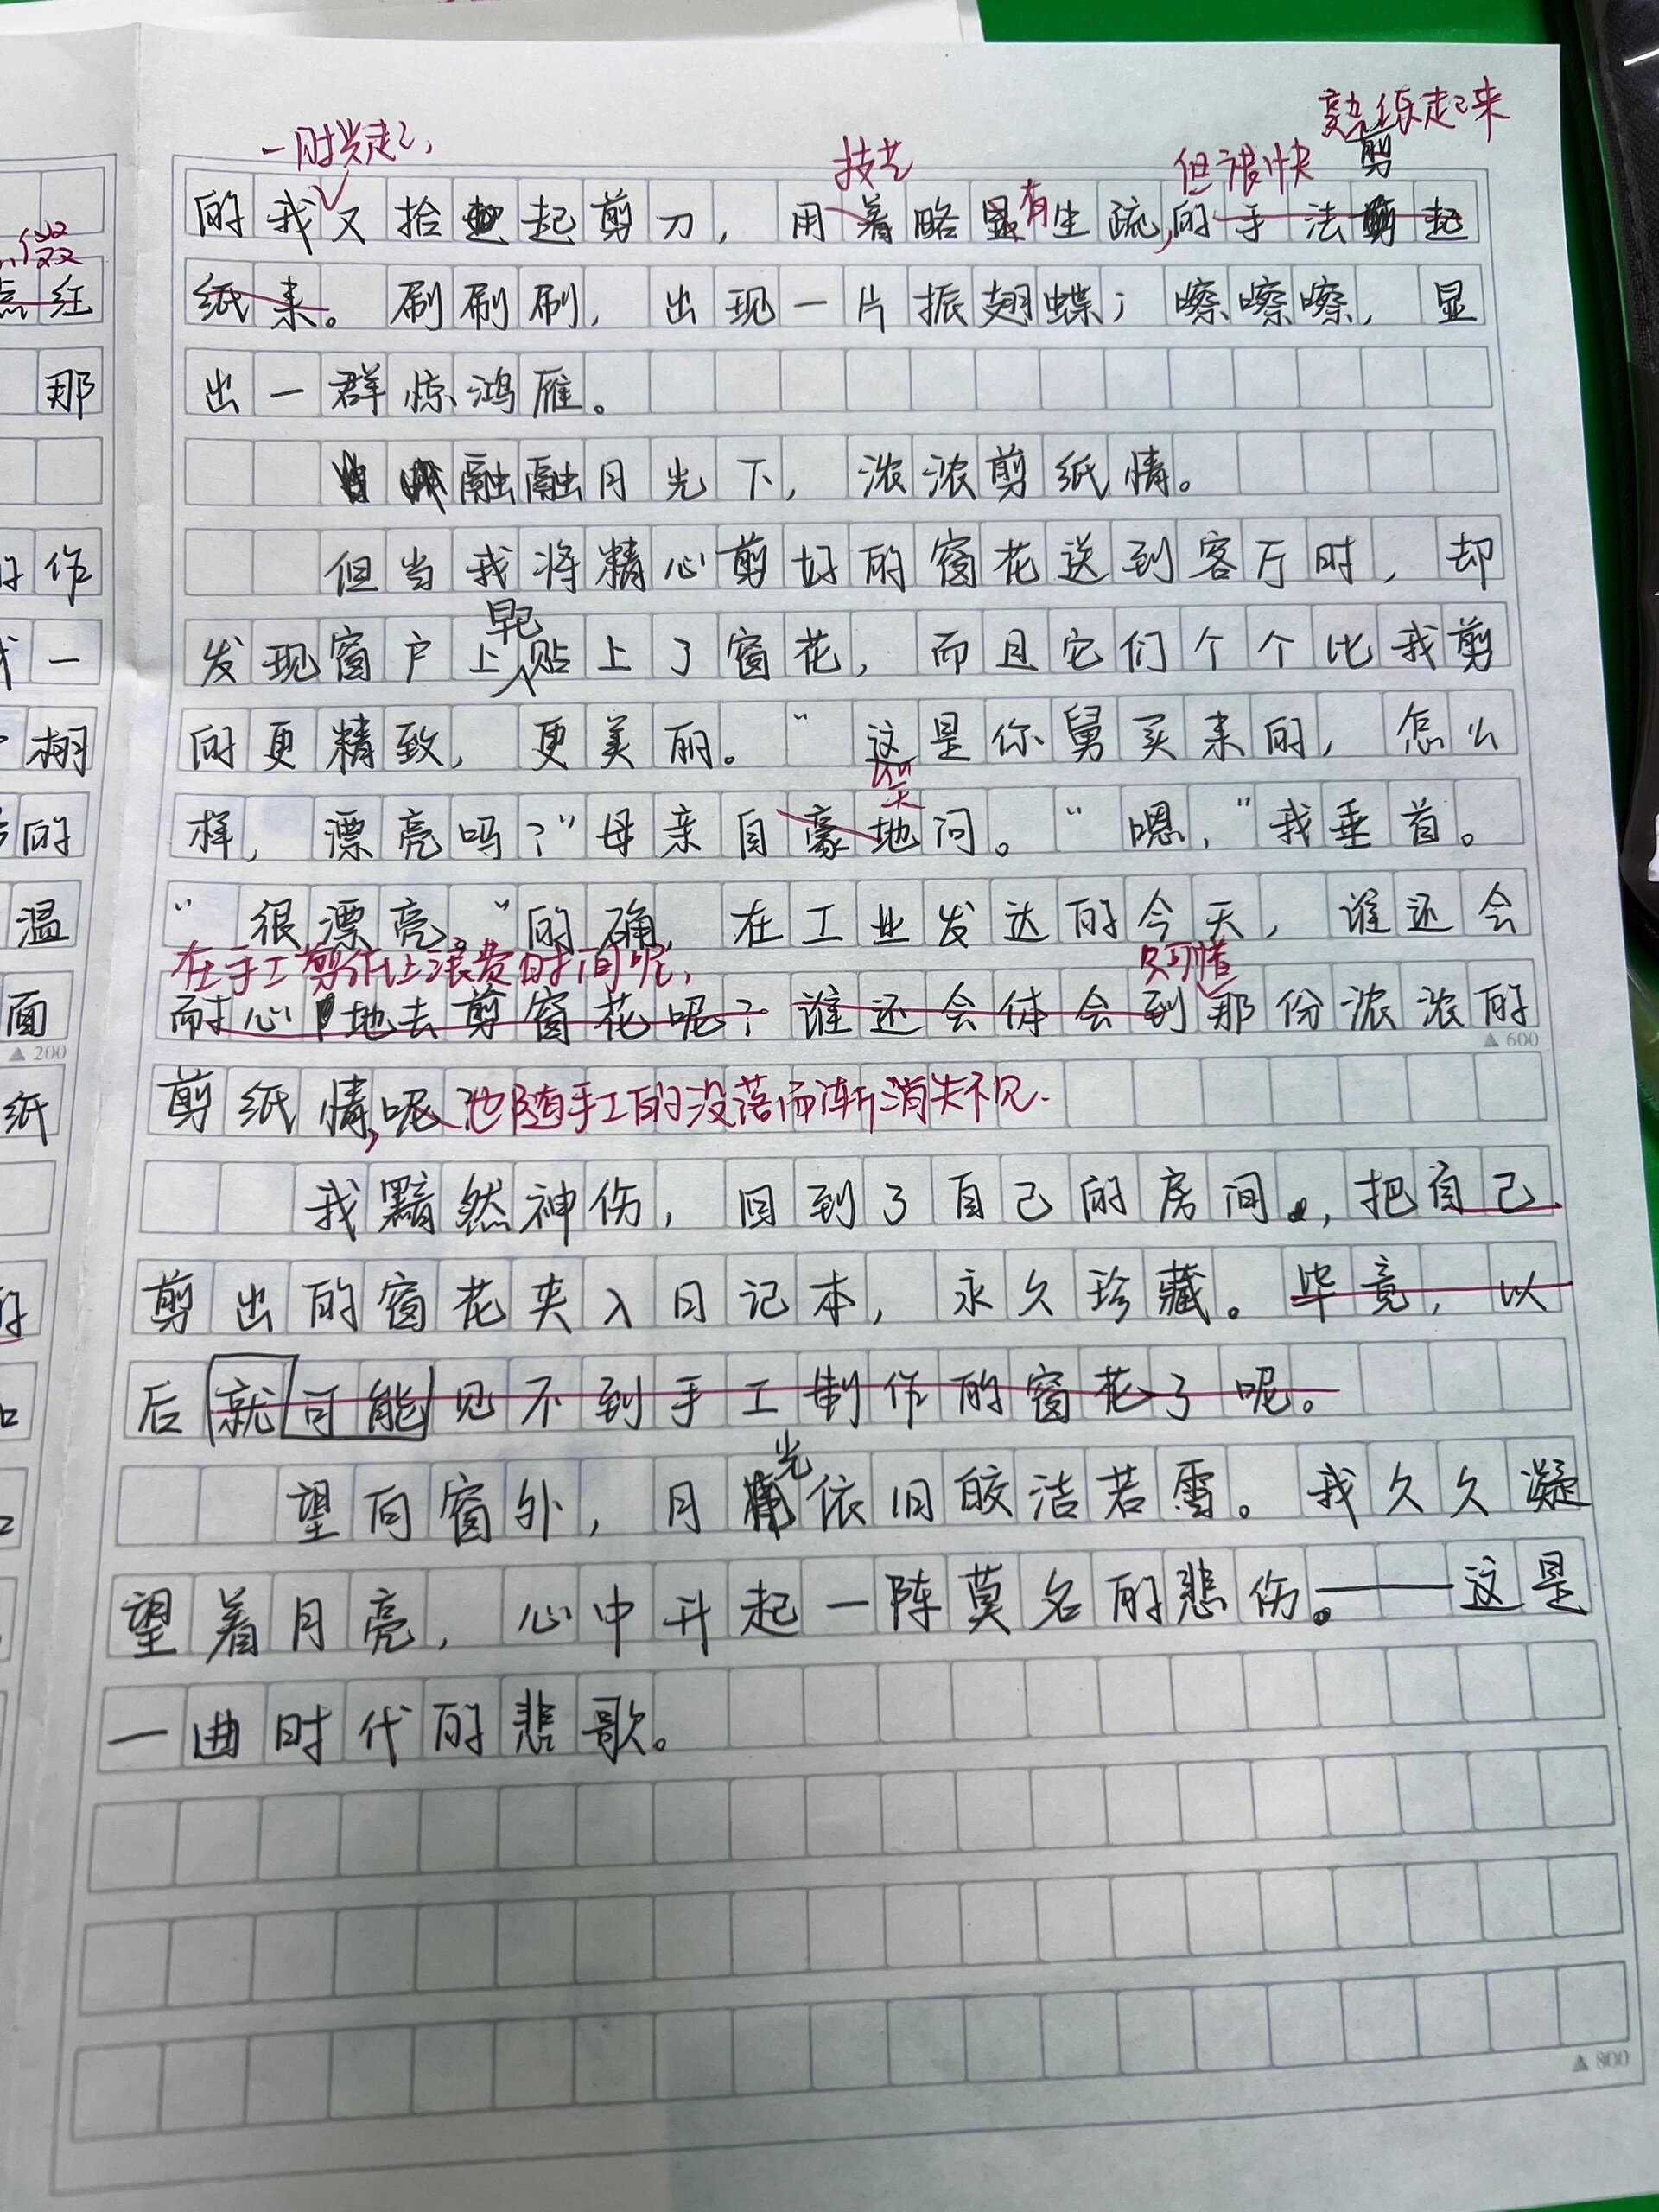 一时兴起，
技艺
但很快
熟练起来
剪
的我又拾起剪刀，用着略显有生疏，的手法剪起
纸来。刷刷刷，出现一片振翅蝶；嚓嚓嚓，显
出一群惊鸿雁。
融融月光下，浓浓剪纸情。
但当我将精心剪好的窗花送到客厅时，却
早已
发现窗户上贴上了窗花，而且它们个个比我剪
的更精致，更美丽。“这是你舅买来的，怎么
样，漂亮吗？”母亲自豪地问。“嗯，”我垂首。
“很漂亮”的确，在工业发达的今天，谁还会
在手工剪纸上浪费时间呢，
只可惜
耐心地去剪窗花呢？谁还会体会到那份浓浓的
600
剪纸情，呢？也随手工的没落而渐消失不见.
我黯然神伤，回到了自己的房间，把自己
剪出的窗花夹入日记本，永久珍藏。毕竟，以
后就可能见不到手工制作的窗花了呢。
光
望向窗外，月依旧皎洁若雪。我久久凝
望着月亮，心中升起一阵莫名的悲伤。——这是
一曲时代的悲歌。
800
红
那
作
一
栅
的
温
面
200
纸